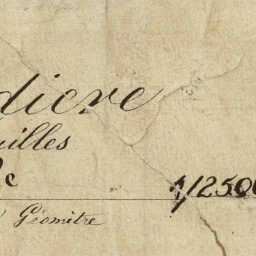 dicre
uilles
1/12500
Géomitre